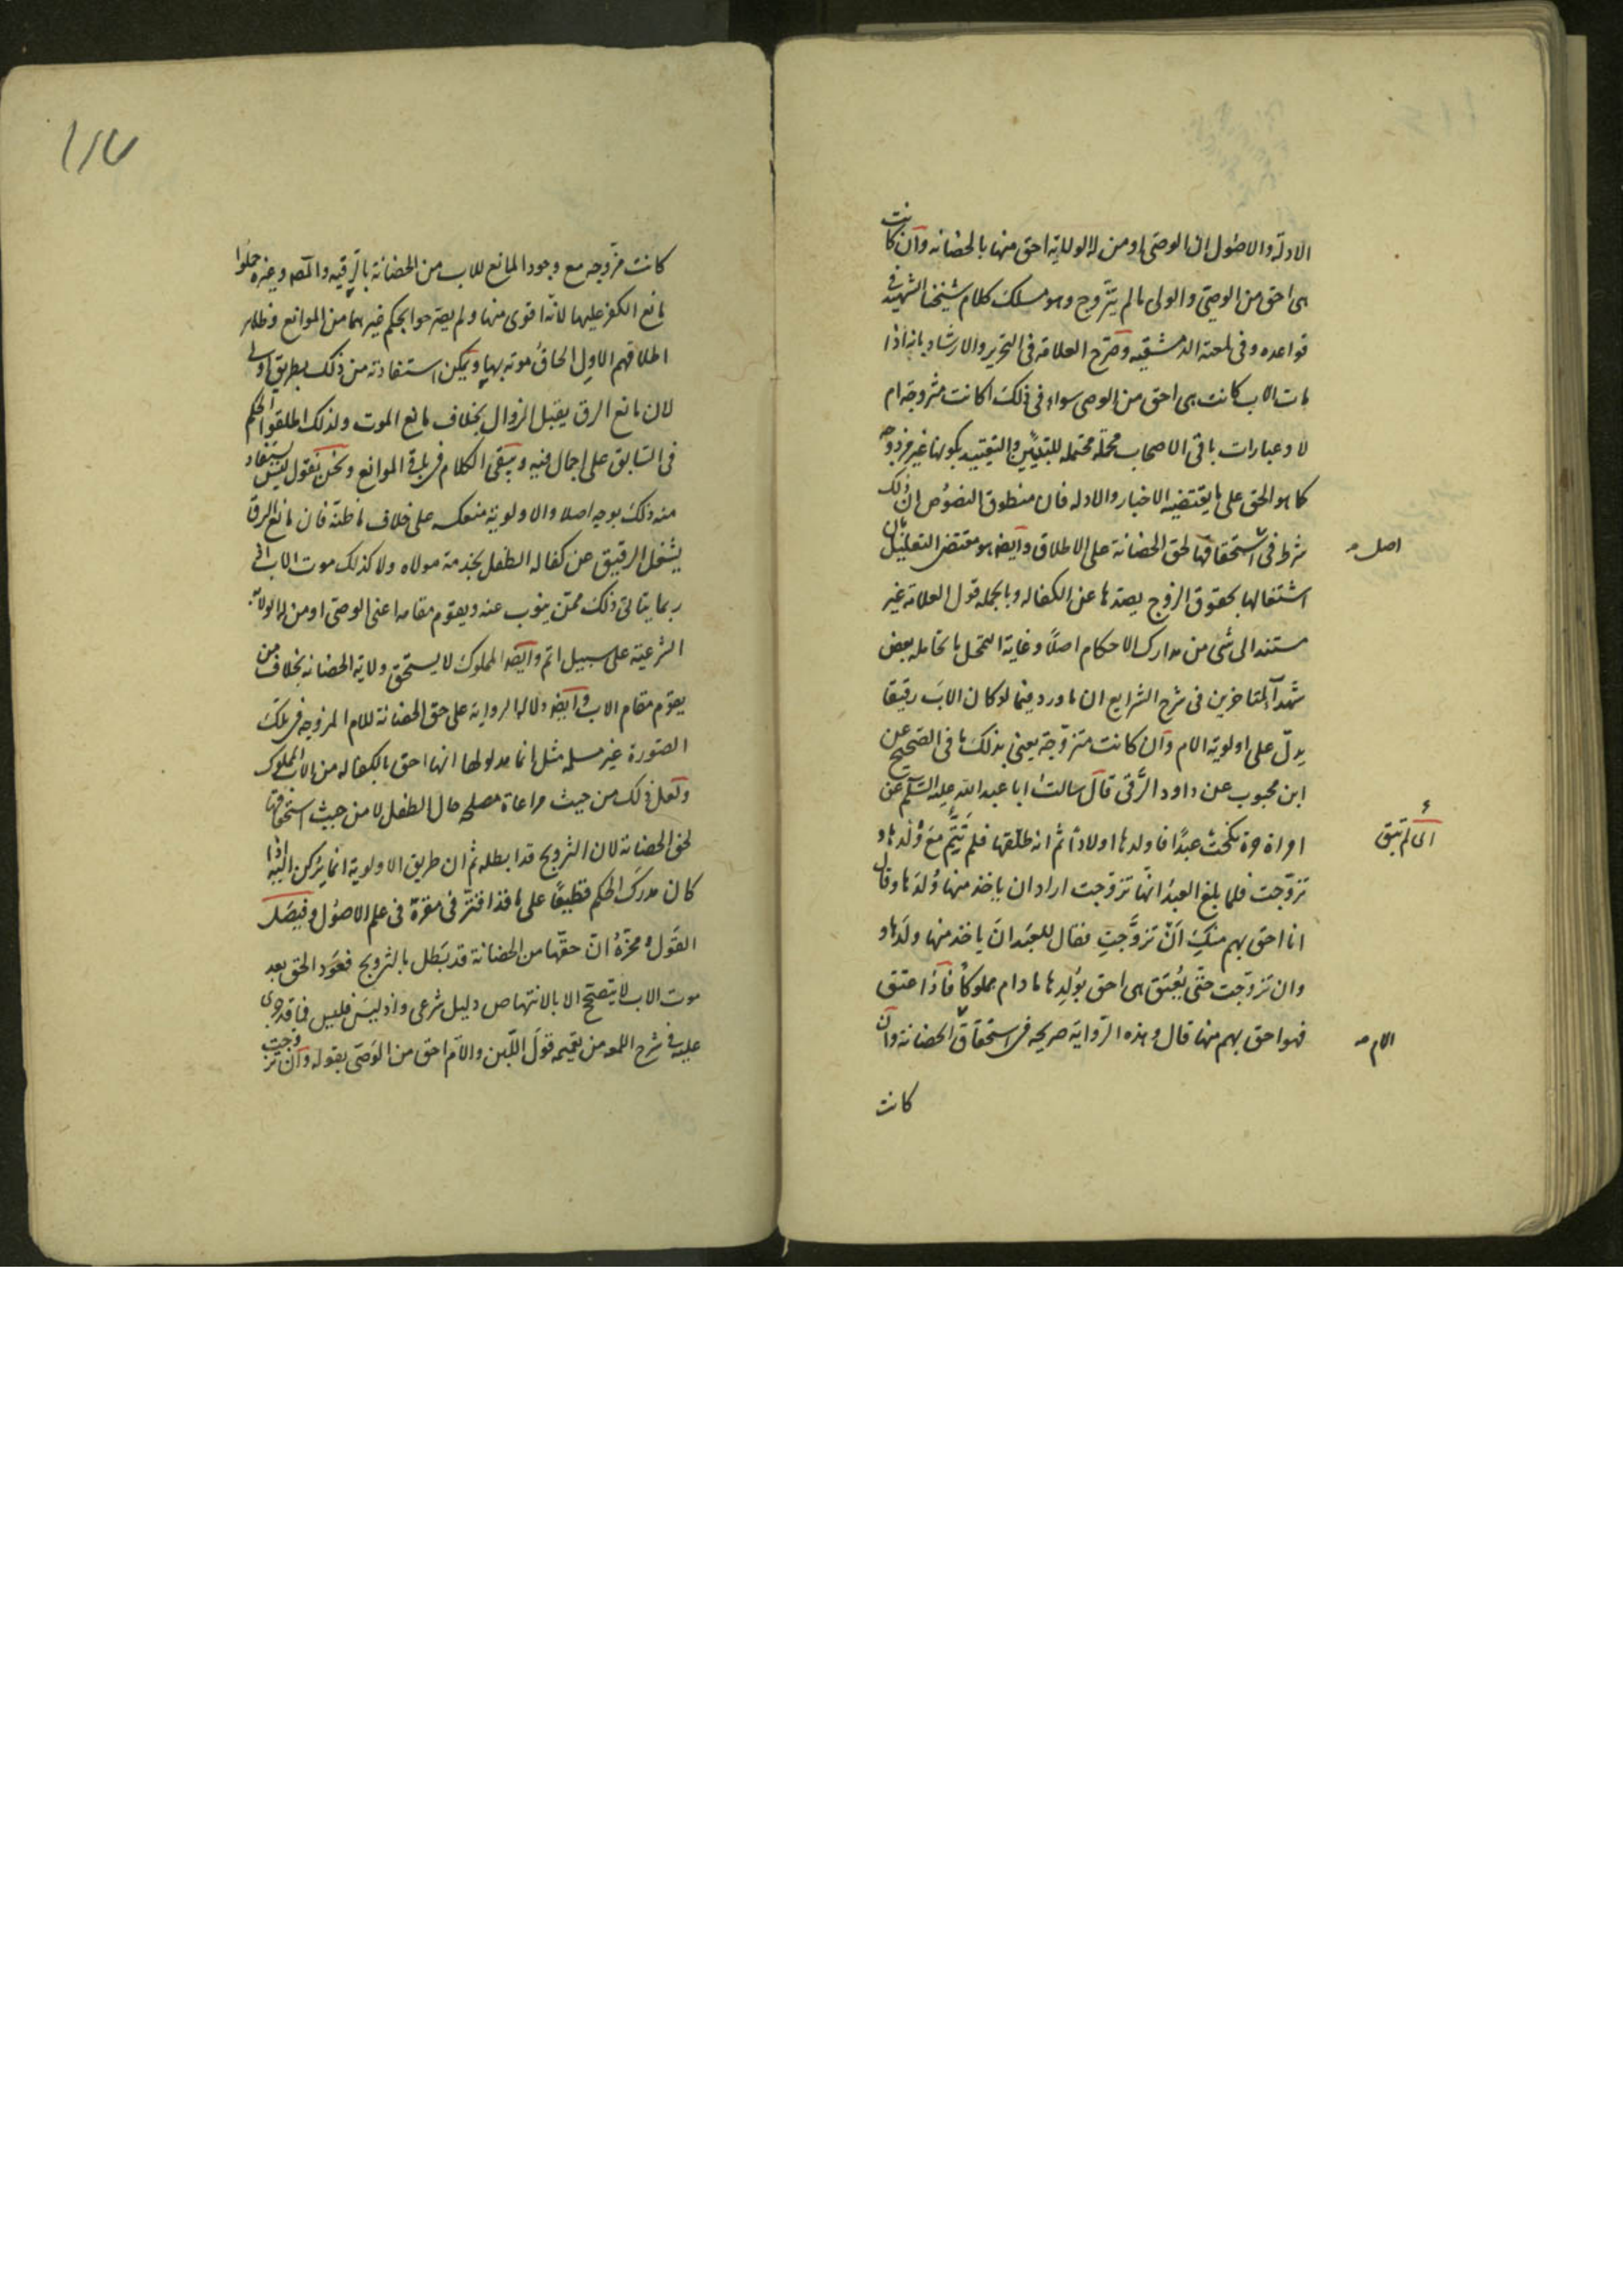 الادلة والاصول ان الوصى او من له الولاية احق منها بالحضانه وان كانت
هى احق من الوصى والولى ما لم يتزوج وهو مسلك كلام شيخنا الشهيد فى
قواعده وفى لمعته الدمشقيه وصرح العلامة فى التحرير والارشاد بانه اذا
مات الاب كانت هى احق من الوصى سواء فى ذلك اكانت متزوجة ام
لا وعبارات باقى الاصحاب مجملة محتمله للتبيين والتقييد بكونها غير مزدوجه
كما هو الحق على ما يقتضيه الاخبار والادله فان منطوق النصوص ان ذلك
شرط فى استحقاقها لحق الحضانة على الاطلاق وايضا هو مقتضى التعليل بان
اصل
اشتغالها بحقوق الزوج يصدها عن الكفاله وبالجمله قول العلامة غير
مستند الى شى من مدارك الاحكام اصلا وغاية التمحل ما تحامله بعض
شهداء المتاخرين فى شرح الشرايع ان ما ورد فيما لو كان الاب رقيقا
يدل على اولوية الام وان كانت متزوجة يعنى بذلك ما فى الصحيح عن
ابن محبوب عن داود الرقى قال سالت ابا عبد الله عليه السلم عن
امراة حرة نكحت عبدا فاولدها اولادا ثم انه طلقها فلم تتم مع ولدها و
تزوجت فلما بلغ العبد انها تزوجت اراد ان ياخذ منها ولدها وقال
انا احق بهم منك ان تزوجت فقال للعبد ان ياخذ منها ولدها و
وان تزوجت حتى يعتق هى احق بولدها ما دام مملوكا فاذا اعتق
فهو احق بهم منها قال وهذه الرواية صريحه فى استحقاق الحضانة وان
الام
كانت
كانت مزوجه مع وجود المانع للاب من الحضانة بالرقيه والمص وغيره جعلوا
مانع الكفر عليها لانه اقوى منها ولم يصرحوا بحكم غيرهما من الموانع وظاهر
اطلاقهم الاول الحاق موته بها ويمكن استفادته من ذلك بطريق اولى
لان مانع الرق يقبل الزوال بخلاف مانع الموت ولذلك اطلقوا الحكم
فى السابق على اجمال فيه ويبقى الكلام فى باقى الموانع ونحن نقول ليس يستفاد
منه ذلك بوجه اصلا والاولوية منعكسه على خلاف ما ظنه فان مانع الرق
يشغل الرقيق عن كفاله الطفل بخدمة مولاه ولا كذلك موت الاب اذ
ربما يتاتى ذلك ممن ينوب عنه ويقوم مقامه اعنى الوصى او من له الولاية
الشرعية على سبيل اتم وايضا المملوك لا يستحق ولاية الحضانه بخلاف من
يقوم مقام الاب وايضا دلاله الرواية على حق الحضانة للام المزوجه فى تلك
الصورة غير مسلمه مثل انما مدلولها انها احق بالكفاله من الاب المملوك
ولعل ذلك من حيث مراعاة مصلحه حال الطفل لا من حيث استحقاقها
لحق الحضانة لان التزويج قد ابطله ثم ان طريق الاولوية انما يركن اليه اذا
كان مدرك الحكم قطعيا على ما قد اقتر فى مقره فى علم الاصول وفيصل
القول ان حقها من الحضانة قد بطل بالتزويج فعود الحق بعد
موت الاب لا يتصحح الا بالانتهاض دليل شرعى واذ ليس فليس فما قد جرى
عليه فى شرح اللمعه من تعميمه قول اللبن والام احق من الوصى بقوله وان تزوجت